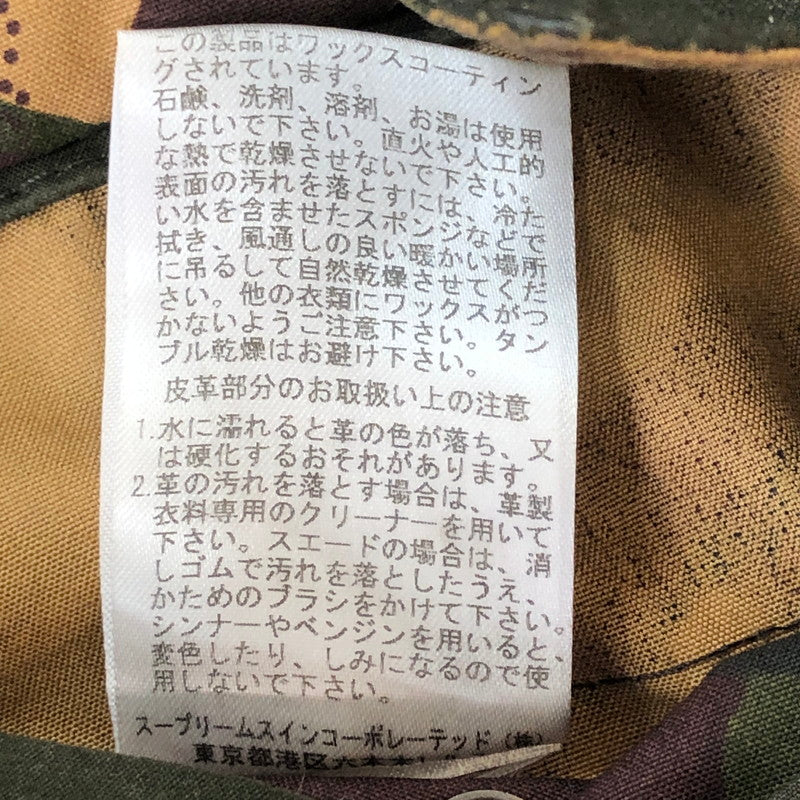 この製品はワックスコーティン
グされています。
石鹸、洗剤、溶剤、お湯は使用
しないで下さい。直火や人工的
な熱で乾燥させないで下さい。
表面の汚れを落とすには、冷た
い水を含ませたスポンジなどで
拭き、風通しの良い暖かい場所
に吊るして自然乾燥させてくだ
さい。他の衣類にワックスがつ
かないようご注意下さい。タン
ブル乾燥はお避け下さい。
皮革部分のお取扱い上の注意
1.水に濡れると革の色が落ち、又
は硬化するおそれがあります。
2.革の汚れを落とす場合は、革製
衣料専用のクリーナーを用いて
下さい。スエードの場合は、消
しゴムで汚れを落としたうえ、
かためのブラシをかけて下さい。
シンナーやベンジンを用いると、
変色したり、しみになるので使
用しないで下さい。
スープリームスインコーポレーテッド(株)
東京都港区六本木